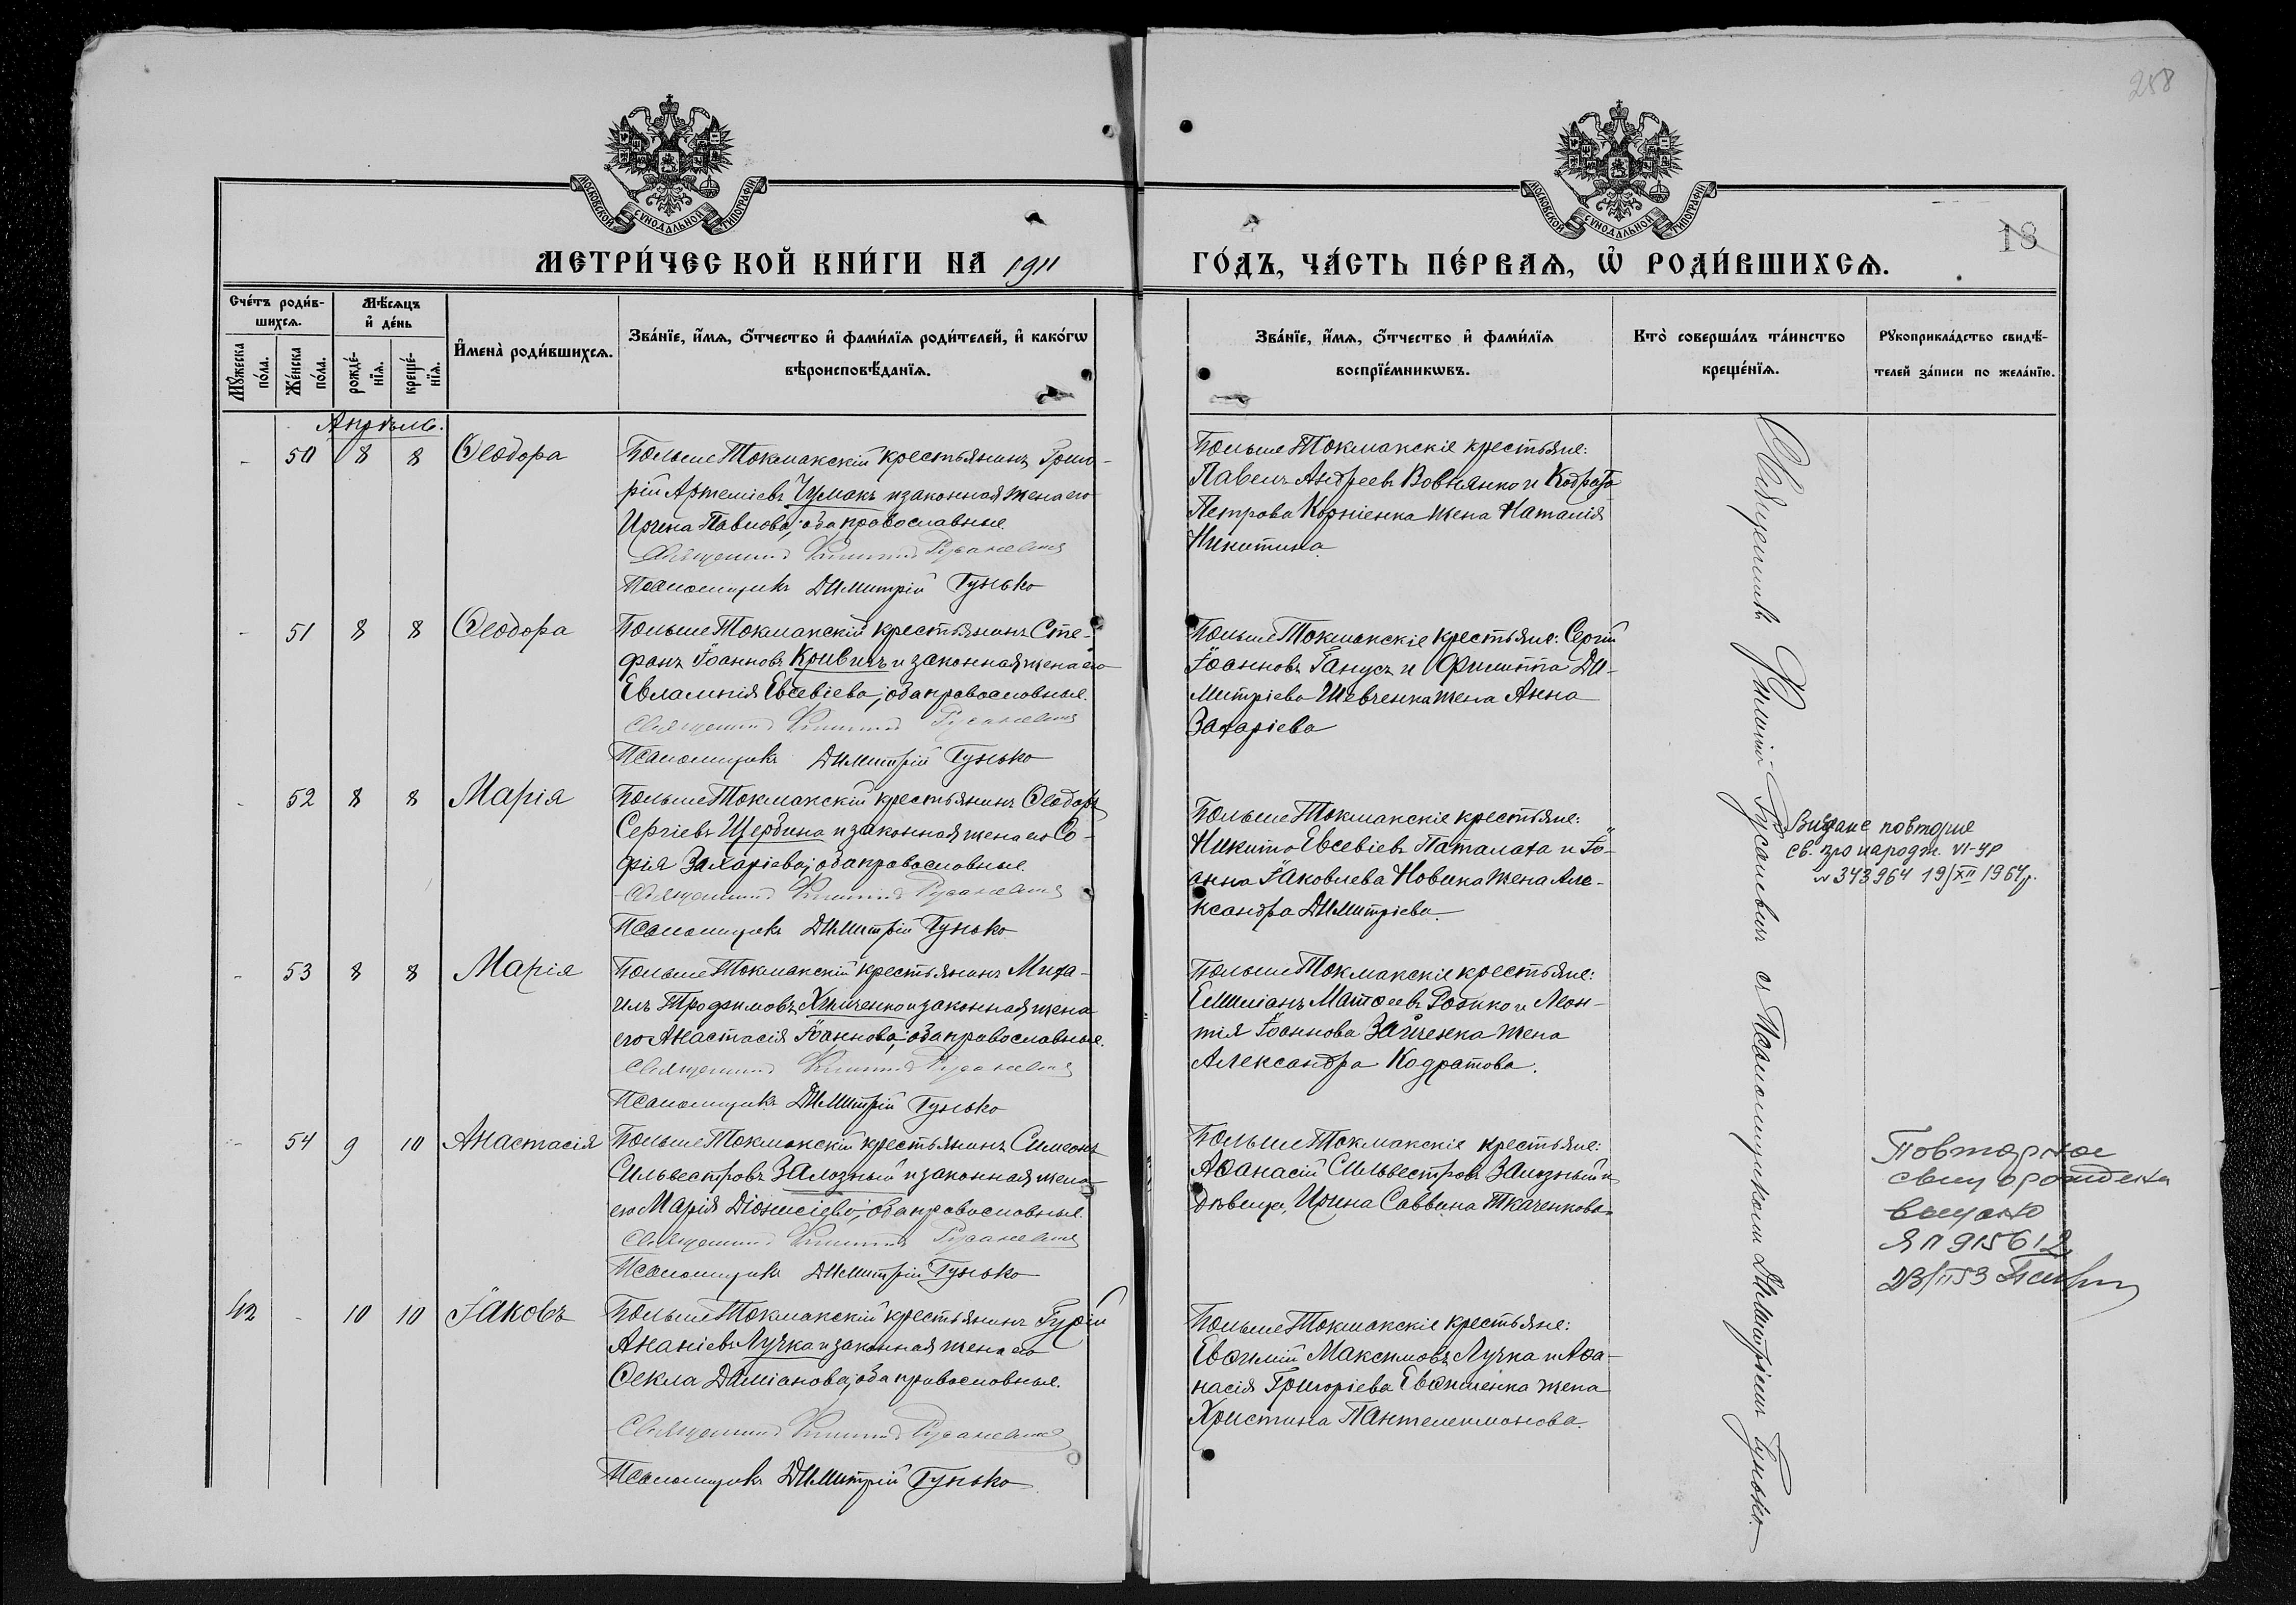 258
МОСКОВСКОЙ СѴНОДАЛЬНОЙ ТИПОГРАФІИ
МОСКОВСКОЙ СѴНОДАЛЬНОЙ ТИПОГРАФІИ
18
МЕТРИ́ЧЕСКОЙ КНИ́ГИ НА 1911
ГО́ДЪ, ЧА́СТЬ ПЕ́РВАѦ, Ѡ҆ РОДИ́ВШИХСѦ.
Сче́тъ роди́в-
шихсѧ.
Мꙋ́жеска по́ла.
Же́нска по́ла.
Мѣ́сѧцъ
и҆ де́нь
рожде́-
нїѧ.
креще́-
нїѧ.
И҆мена̀ роди́вшихсѧ.
Зва́нїе, и҆́мѧ, ѻ҆́тчество и҆ фами́лїѧ роди́телей, и҆ како́гѡ
вѣроисповѣ́данїѧ.
Зва́нїе, и҆́мѧ, ѻ҆́тчество и҆ фами́лїѧ
воспрїе́мникѡвъ.
Кто̀ соверша́лъ та́инство
креще́нїѧ.
Рꙋкоприкла́дство свидѣ́-
телей за́писи по жела́нїю.
Апрѣль.
- 50 8 8 Ѳеодора
БольшеТокмакскій крестьянинъ Григо-
рій Артеміевъ Чумакъ и законная жена его
Ирина Павлова; оба православные.
Священникъ Филиппъ Русаневичъ
Псаломщикъ Димитрій Гунько
БольшеТокмакскіе крестьяне:
Павелъ Андреевъ Вовнянко и Кодрата
Петрова Корніенка жена Наталія
Никитина
- 51 8 8 Ѳеодора
БольшеТокмакскій крестьянинъ Сте-
фанъ Іоанновъ Кривичъ и законная жена его
Евлампія Евсевіева; оба православные.
Священникъ Филиппъ Русаневичъ
Псаломщикъ Димитрій Гунько
БольшеТокмакскіе крестьяне: Сергій
Іоанновъ Ганусъ и Филиппа Ди-
митріева Шевченка жена Анна
Захаріева
- 52 8 8 Марія
БольшеТокмакскій крестьянинъ Ѳеодоръ
Сергіевъ Щербина и законная жена его Со-
фія Захаріева; оба православные.
Священникъ Филиппъ Русаневичъ
Псаломщикъ Димитрій Гунько
БольшеТокмакскіе крестьяне:
Никита Евсевіевъ Паталаха и Іо-
анна Іаковлева Новика жена Але-
ксандра Димитріева.
Видане повторне
св. про народж. VI-УР
№ 343964 19/XII 1964р.
- 53 8 8 Марія
БольшеТокмакскій крестьянинъ Миха-
илъ Трофимовъ Химченко и законная жена
его Анастасія Іоаннова; оба православные.
Священникъ Филиппъ Русаневичъ
Псаломщикъ Димитрій Гунько
БольшеТокмакскіе крестьяне:
Емиліанъ Матѳеевъ и Леон-
тія Іоаннова Зайченка жена
Александра Кодратова.
- 54 9 10 Анастасія
БольшеТокмакскій крестьянинъ Симеонъ
Сильвестровъ Залозный и законная жена
его Марія Діонисіева; оба православные.
Священникъ Филиппъ Русаневичъ
Псаломщикъ Димитрій Гунько
БольшеТокмакскіе крестьяне:
Аѳанасій Сильвестровъ Залозный и
дѣвица, Ирина Саввина Ткаченкова
Повторное
свид о рождении
выдано
ЯП 915612
23/II 53
42 - 10 10 Іаковъ
БольшеТокмакскій крестьянинъ Гурій
Ананіевъ Лучка и законная жена его
Ѳекла Даміанова; оба православные.
Священникъ Филиппъ Русаневичъ
Псаломщикъ Димитрій Гунько
БольшеТокмакскіе крестьяне:
Евѳимій Максимовъ Лучка и Аѳа-
насія Григоріева жена
Христина Пантелеимонова.
Священникъ Филиппъ Русаневичъ съ Псаломщикомъ Димитріемъ Гунько.